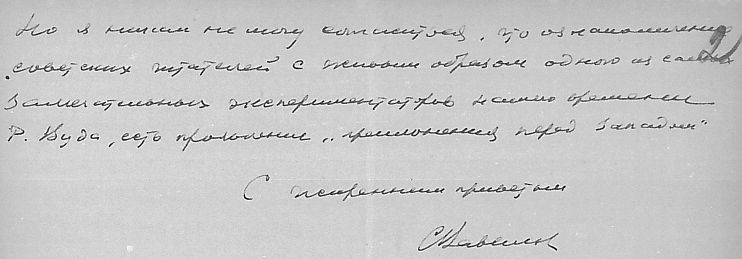 Но я никак не могу согласиться, что ознакомление
советских читателей с живым образом одного из самых
замечательных экспериментаторов нашего времени
Р. Вуда, есть проявление „преклонения перед Западом“
С искренним приветом
СВавилов